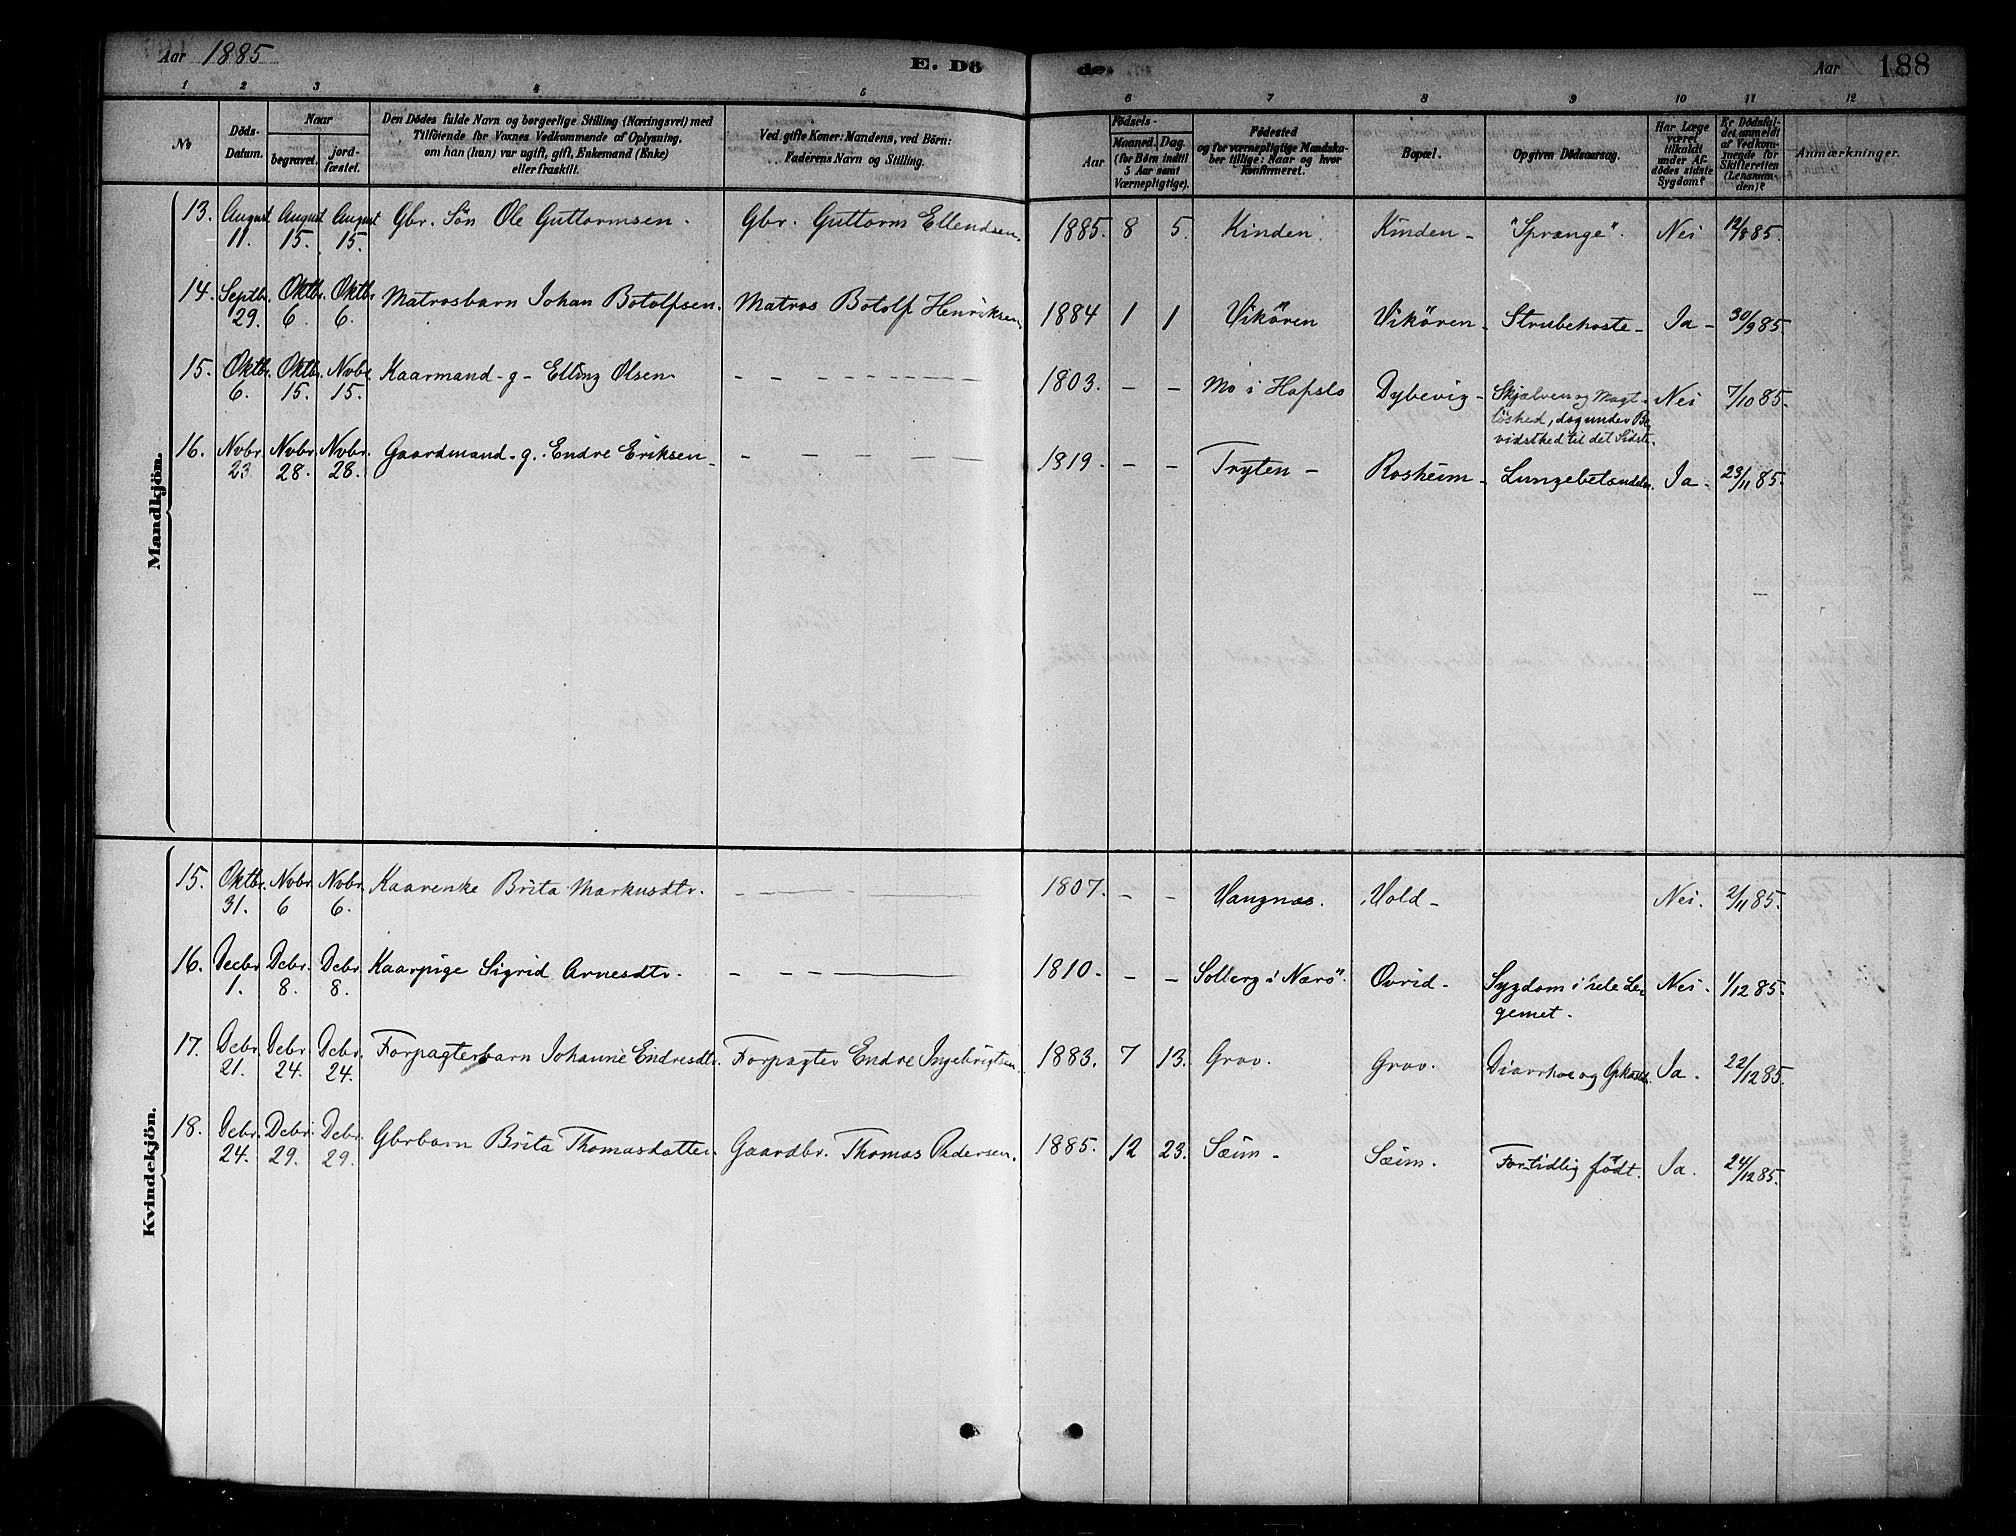 Aar 1885 E. Dö de. Aar 188
1 2 3 4 5 6 7 8 9 10 11 12
No Döds-Datum. Naar begravet. jordfæstet. Den Dödes fulde Navn og borgerlige Stilling (Næringsvei) med Tilföiende for Voxnes Vedkommende af Oplysning, om han (hun) var ugift, gift, Enkemand (Enke) eller fraskilt. Ved gifte Koner: Mandens, ved Börn: Faderens Navn og Stilling. Födsels- Aar Maaned. Dag. (for Börn indtil 5 Aar samt Værnepligtige). Födested og for værnepligtige Mandskaber tillige: Naar og hvor konfirmeret. Bopæl. Opgiven Dödsaarsag. Har Læge været tilkaldt under Afdödes sidste Sygdom? Er Dödsfaldet anmeldt af Vedkommende for Skifteretten (Lensmanden)? Anmærkninger.
Mandkjön.
13. August 11. August 15. August 15. Gbr. Sön Ole Guttormsen. Gbr. Guttorm Ellendsen. 1885. 8 5. Kinden. Kinden - "Sprænge". Nei 12/8 85.
14. Septbr. 29. Oktbr. 6. Oktbr. 6. Matrosbarn Johan Botolfsen. Matros Botolf Henriksen. 1884 1 1 Vikören Vikören - Strubehoste - Ja - 30/9 85.
15. Oktbr. 6. Oktbr. 15. Nvbr. 15. Kaarmand - g - Elling Olsen. - - - 1803. - - Mo i Hafslo Dybevig - Skjælven og Magtlöshed, dog under Bevidsthed til det Sidste. Nei 7/10 85.
16. Nvbr. 23 Nvbr. 28. Nvbr. 28. Gaardmand - g. Endre Eriksen - - - - 1819. - - Tryten - Rosheim - Lungebetændelse. Ja - 23/11 85.
Kvindekjön.
15. Oktbr. 31. Nvbr. 6 Nvbr. 6. Kaarenke Brita Markusdtr. - - - 1807. - - Vangnæs. Vold - Nei. 2/11 85.
16. Decbr. 1. Dcbr. 8. Dcbr. 8. Kaarpige Sigrid Arnesdtr. - - - 1810. - - Solberg i Nærö. Ovrid - Sygdom i hele Legemet. Nei. 1/12 85.
17. Dcbr. 21. Dcbr. 24. Dcbr. 24. Forpagterbarn Johanne Endresdtr. Forpagter Endre Ingebrigtsen. 1883. 7 13. Grov. Grov. Diarrhoe og Opkast. Ja. 22/12 85.
18. Dcbr. 24. Dcbr. 29. Dcbr. 29. Gbrbarn Brita Thomasdatter. Gaardbr. Thomas Pedersen. 1885. 12 23. Sæim - Sæim. Fortidlig födt. Ja. 24/12 85.